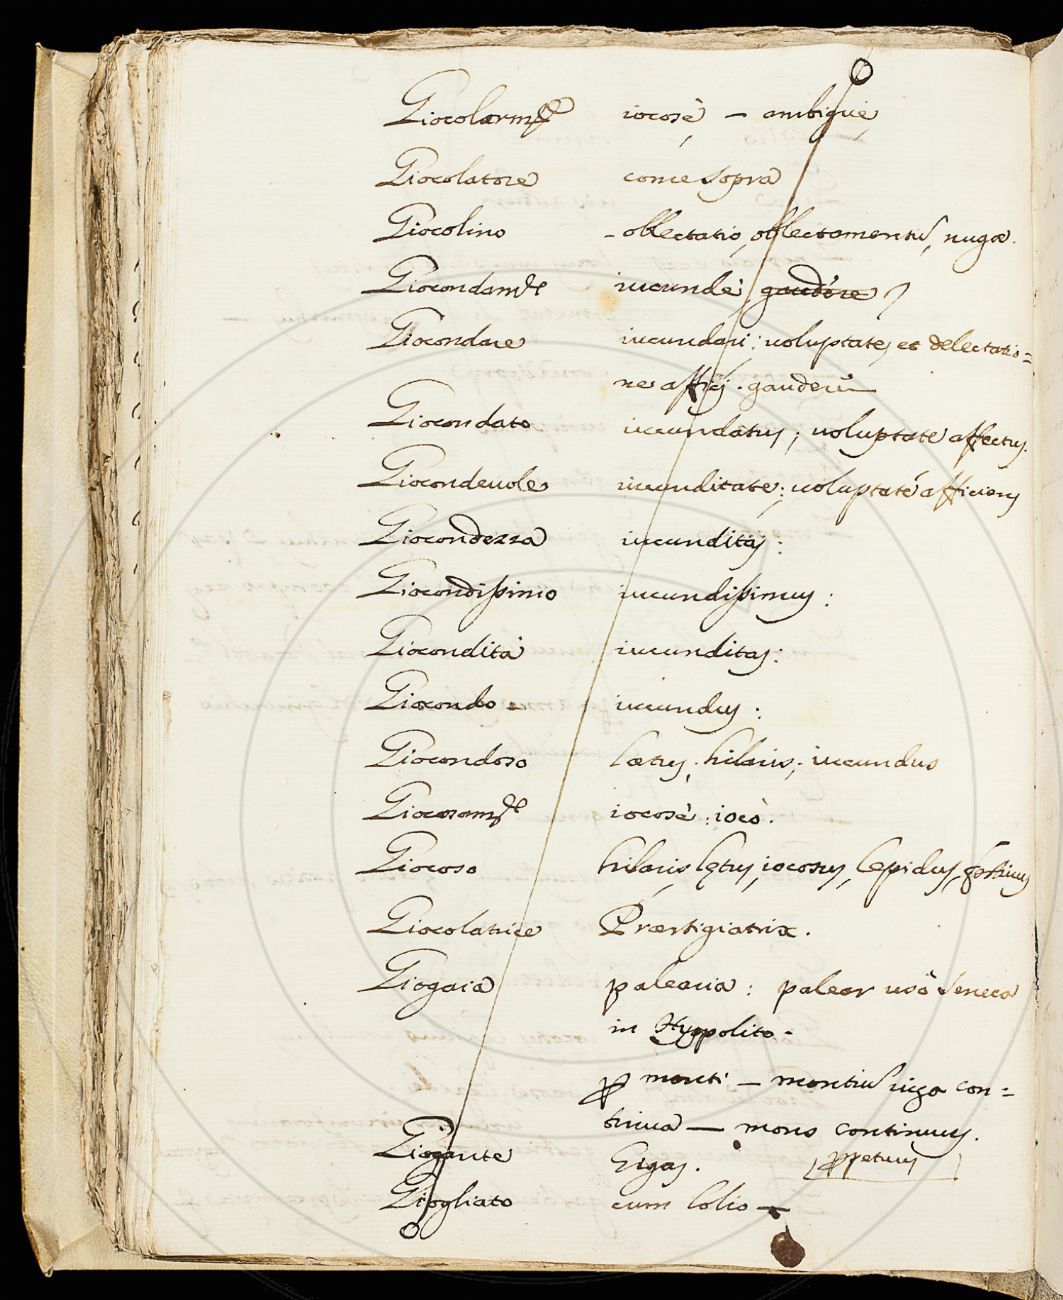 Giocolarmte iocosè – ambiguè
Giocolatore come sopra
Giocolino – oblectatio, oblectamentũ, nugæ.
Giocondamte iucundè, gaudere
Giocondare iucundari; uoluptate, et delectatio=
ne affici. gaudere
Giocondato iucundatus; uoluptate affectus.
Giocondeuole iucunditate; uoluptate afficiens
Giocondezza iucunditas:
Giocondissimo iucundissimus:
Giocondità iucunditas:
Giocondo iucundus:
Giocondoso lætus, hilaris, iucundus
Giocosamte iocosè: iocò.
Giocoso hilaris, lętus, iocosus, lepidus, festiuus
Giocolatrice Præstigiatrix.
Giogaia palearia: palear usò Seneca
in Hyppolito –
p monti – montiũ iuga con=
tinua – mons continuus.
ppetuus
Gigante Gigas.
Giogliato cum lolio –